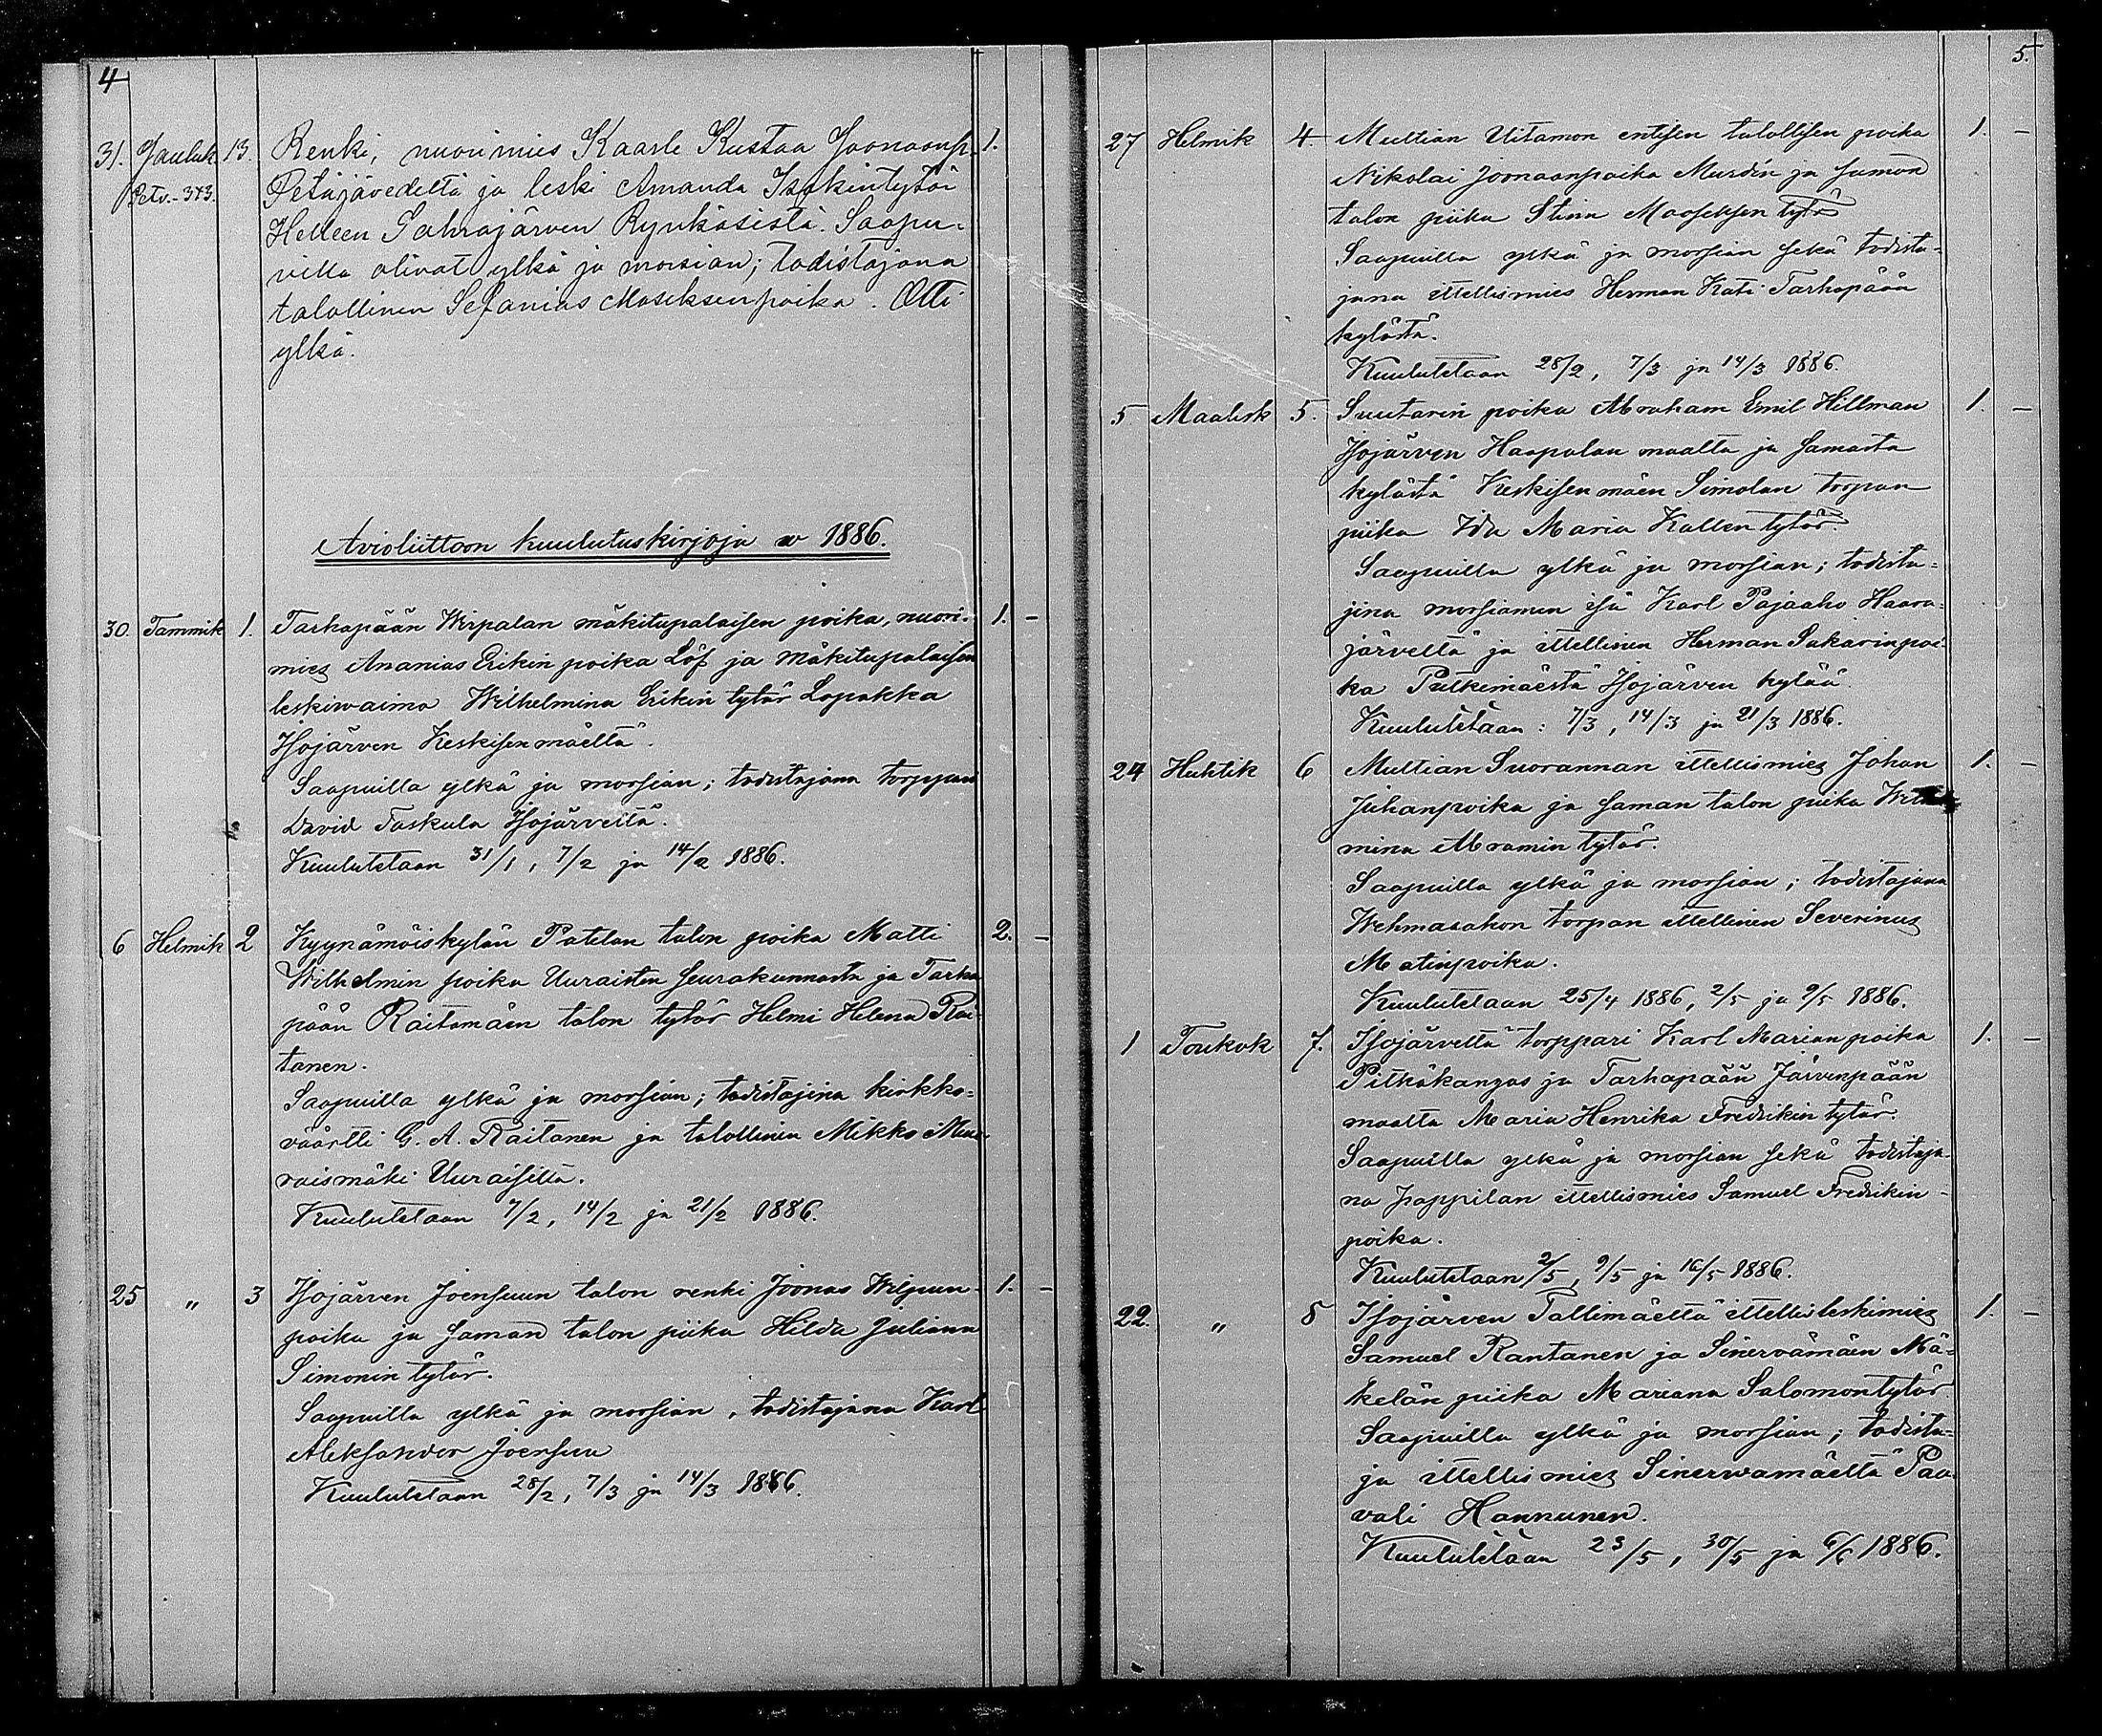 4
31. Jouluk. 13. Renki, nuorimies Kaarle Kustaa Joonaanp. 1.
Petv.-373. Petäjävedeltä ja leski Amanda Isakintytär
Helleen Gahrajärven Rynkäsistä. Saapu-
villa olivat ylkä ja morsian; todistajana
talollinen Sefanias Moseksenpoika. Otti
ylkä.
Avioliittoon kuulutuskirjoja w 1886.
30. Tammik 1. Tarhapään Wirpalan mäkitupalaisen poika, nuori- 1. -
mies Ananias Erikin poika Löf ja mäkitupalaisen
leskiwaimo Wilhelmina Erikin tytär Lopakka
Isojärven Keskisenmäeltä.
Saapuilla ylkä ja morsian; todistajana torppari
David Taskula Isojärveltä.
Kuulutetaan 31/1, 7/2 ja 14/2 1886.
6 Helmik 2 Kyynämöiskylän Patelan talon poika Matti 2. -
Wilhelmin poika Uuraisten seurakunnasta ja Tarha
pään Raitamäen talon tytär Helmi Helena Rai-
tanen.
Saapuilla ylkä ja morsian; todistajina kirkko-
väärtti G. A. Raitanen ja talollinen Mikko Muu-
raismäki Uuraisilta.
Kuulutetaan 7/2, 14/2 ja 21/2 1886.
25 " 3 Isojärven Joensuun talon renki Joonas Wilpun- 1. -
poika ja saman talon piika Hilda Juliana
Simonin tytär.
Saapuilla ylkä ja morsian, todistajana Karl
Aleksander Joensuu
Kuulutetaan 28/2, 7/3 ja 14/3 1886.
5.
27 Helmik 4. Multian Uitamon entisen talollisen poika 1. -
Nikolai Joonaanpoika Murdin ja saman
talon piika Stina Mooseksen tytär
Saapuilla ylkä ja morsian sekä todista-
jana ittellismies Herman Kati Tarhapään
kylästä.
Kuulutetaan 28/2, 7/3 ja 14/3 1886.
5 Maalisk 5. Suutarin poika Abraham Emil Hillman 1. -
Isojärven Haapalan maalta ja samasta
kylästä Keskisenmäen Simolan torpan
piika Ida Maria Kallen tytär.
Saapuilla ylkä ja morsian; todista-
jina morsiamen isä Karl Pajaaho Haara-
järveltä ja ittellinen Herman Sakarinpoi-
ka Putkimäestä Isojärven kylää.
Kuulutetaan: 7/3, 14/3 ja 21/3 1886.
24 Huhtik 6 Multian Suorannan ittellismies Johan 1. -
Juhanpoika ja saman talon piika
mina Abramin tytär.
Saapuilla ylkä ja morsian; todistajana
Wehmasahon torpan ittellinen Severinus
Matinpoika.
Kuulutetaan 25/4 1886, 2/5 ja 9/5 1886.
1 Toukok 7. Isojärveltä torppari Karl Marian poika 1. -
Pitkäkangas ja Tarhapään Järvenpään
maalta Maria Henrika Fredrikin tytär.
Saapuilla ylkä ja morsian sekä todistaja-
na pappilan ittellismies Samuel Fredrikin-
poika.
Kuulutetaan 2/5, 9/5 ja 16/5 1886.
22. " 8 Isojärven Tallimäeltä ittellisleskimies 1. -
Samuel Rantanen ja Sinervämäen Mä-
kelän piika Mariana Salomontytär
Saapuilla ylkä ja morsian; todista-
ja ittellismies Sinerwamäeltä Paa-
vali Hannunen.
Kuulutetaan 23/5, 30/5 ja 6/6 1886.